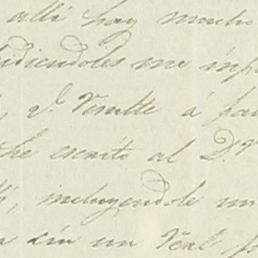 allí hay mucho
idiendoles me imp
V. Veralte á fa
he escrito al Dr
incluyendole un
sin un Real p